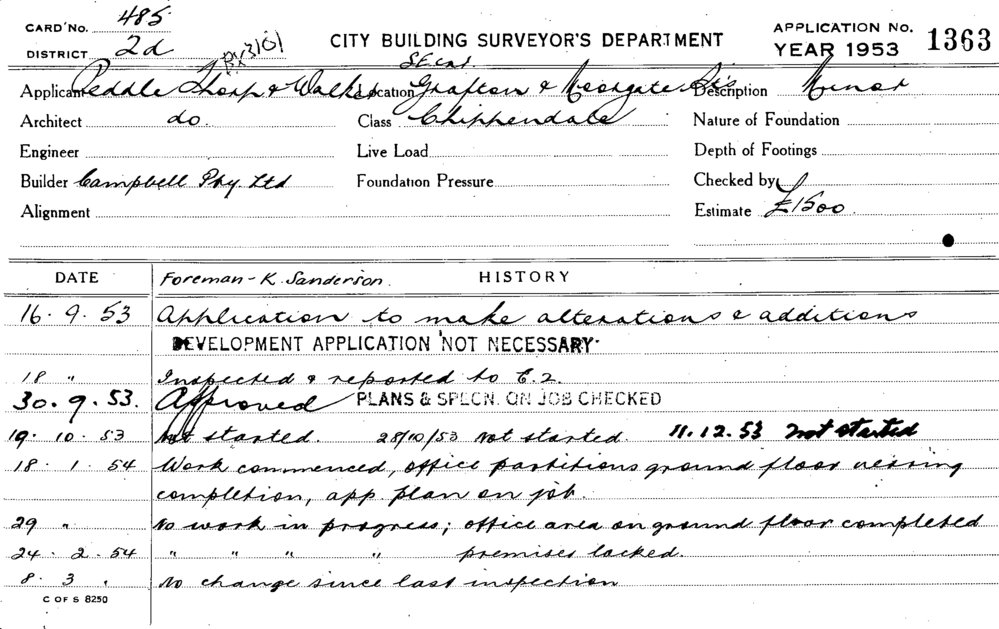 CARD No. 485
DISTRICT 2d
BX3101
CITY BUILDING SURVEYOR'S DEPARTMENT
APPLICATION No.
YEAR 1953 1363
SE cnr.
Applicant Peddle Thorp & Walker Location Grafton & Moorgate St's Description Minor
Architect do. Class Chippendale Nature of Foundation
Engineer Live Load Depth of Footings
Builder Campbell Pty. Ltd Foundation Pressure Checked by
Alignment Estimate £1500
DATE Foreman - K. Sanderson. HISTORY
16. 9. 53 Application to make alterations & additions
DEVELOPMENT APPLICATION NOT NECESSARY
18 " Inspected & reported to E.2.
30. 9. 53. Approved PLANS & SPLCN. ON JOB CHECKED
19. 10. 53 Not started. 28/10/53 not started. 11.12.53 not started
18. 1. 54 Work commenced, office partitions ground floor nearing
completion, app. plan on job.
29 " No work in progress; office area on ground floor completed
24. 2. 54 " " " " premises locked.
8. 3 . No change since last inspection
C OF S 8250